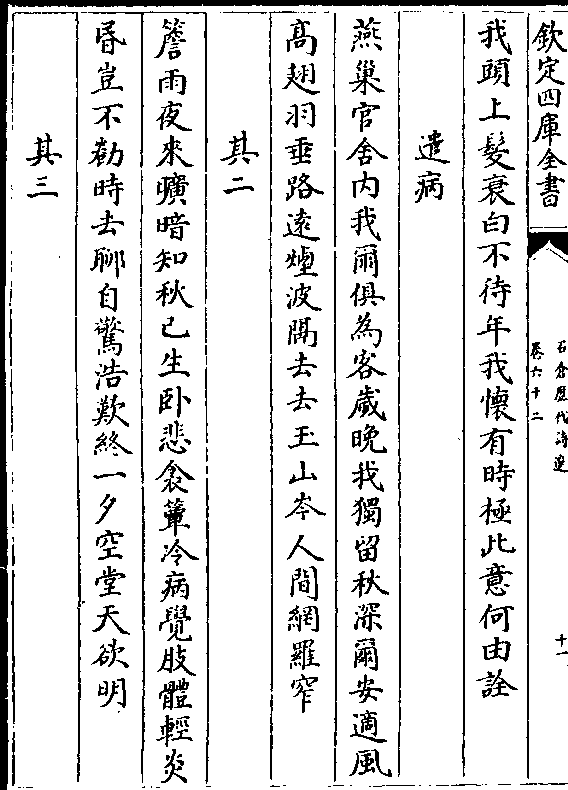 欽定四庫全書
石倉歷代詩選
卷六十二
十一
我頭上髮衰白不待年我懷有時極此意何由詮
遣病
燕巢官舍内我爾俱為客歲晚我獨留秋深爾安適風
髙翅羽垂路遠煙波隔去去玉山岑人間網羅窄
其二
簷雨夜來曠暗知秋已生卧悲衾簟冷病覺肢體輕炎
昏豈不勌時去聊自驚浩歎終一夕空堂天欲明
其三